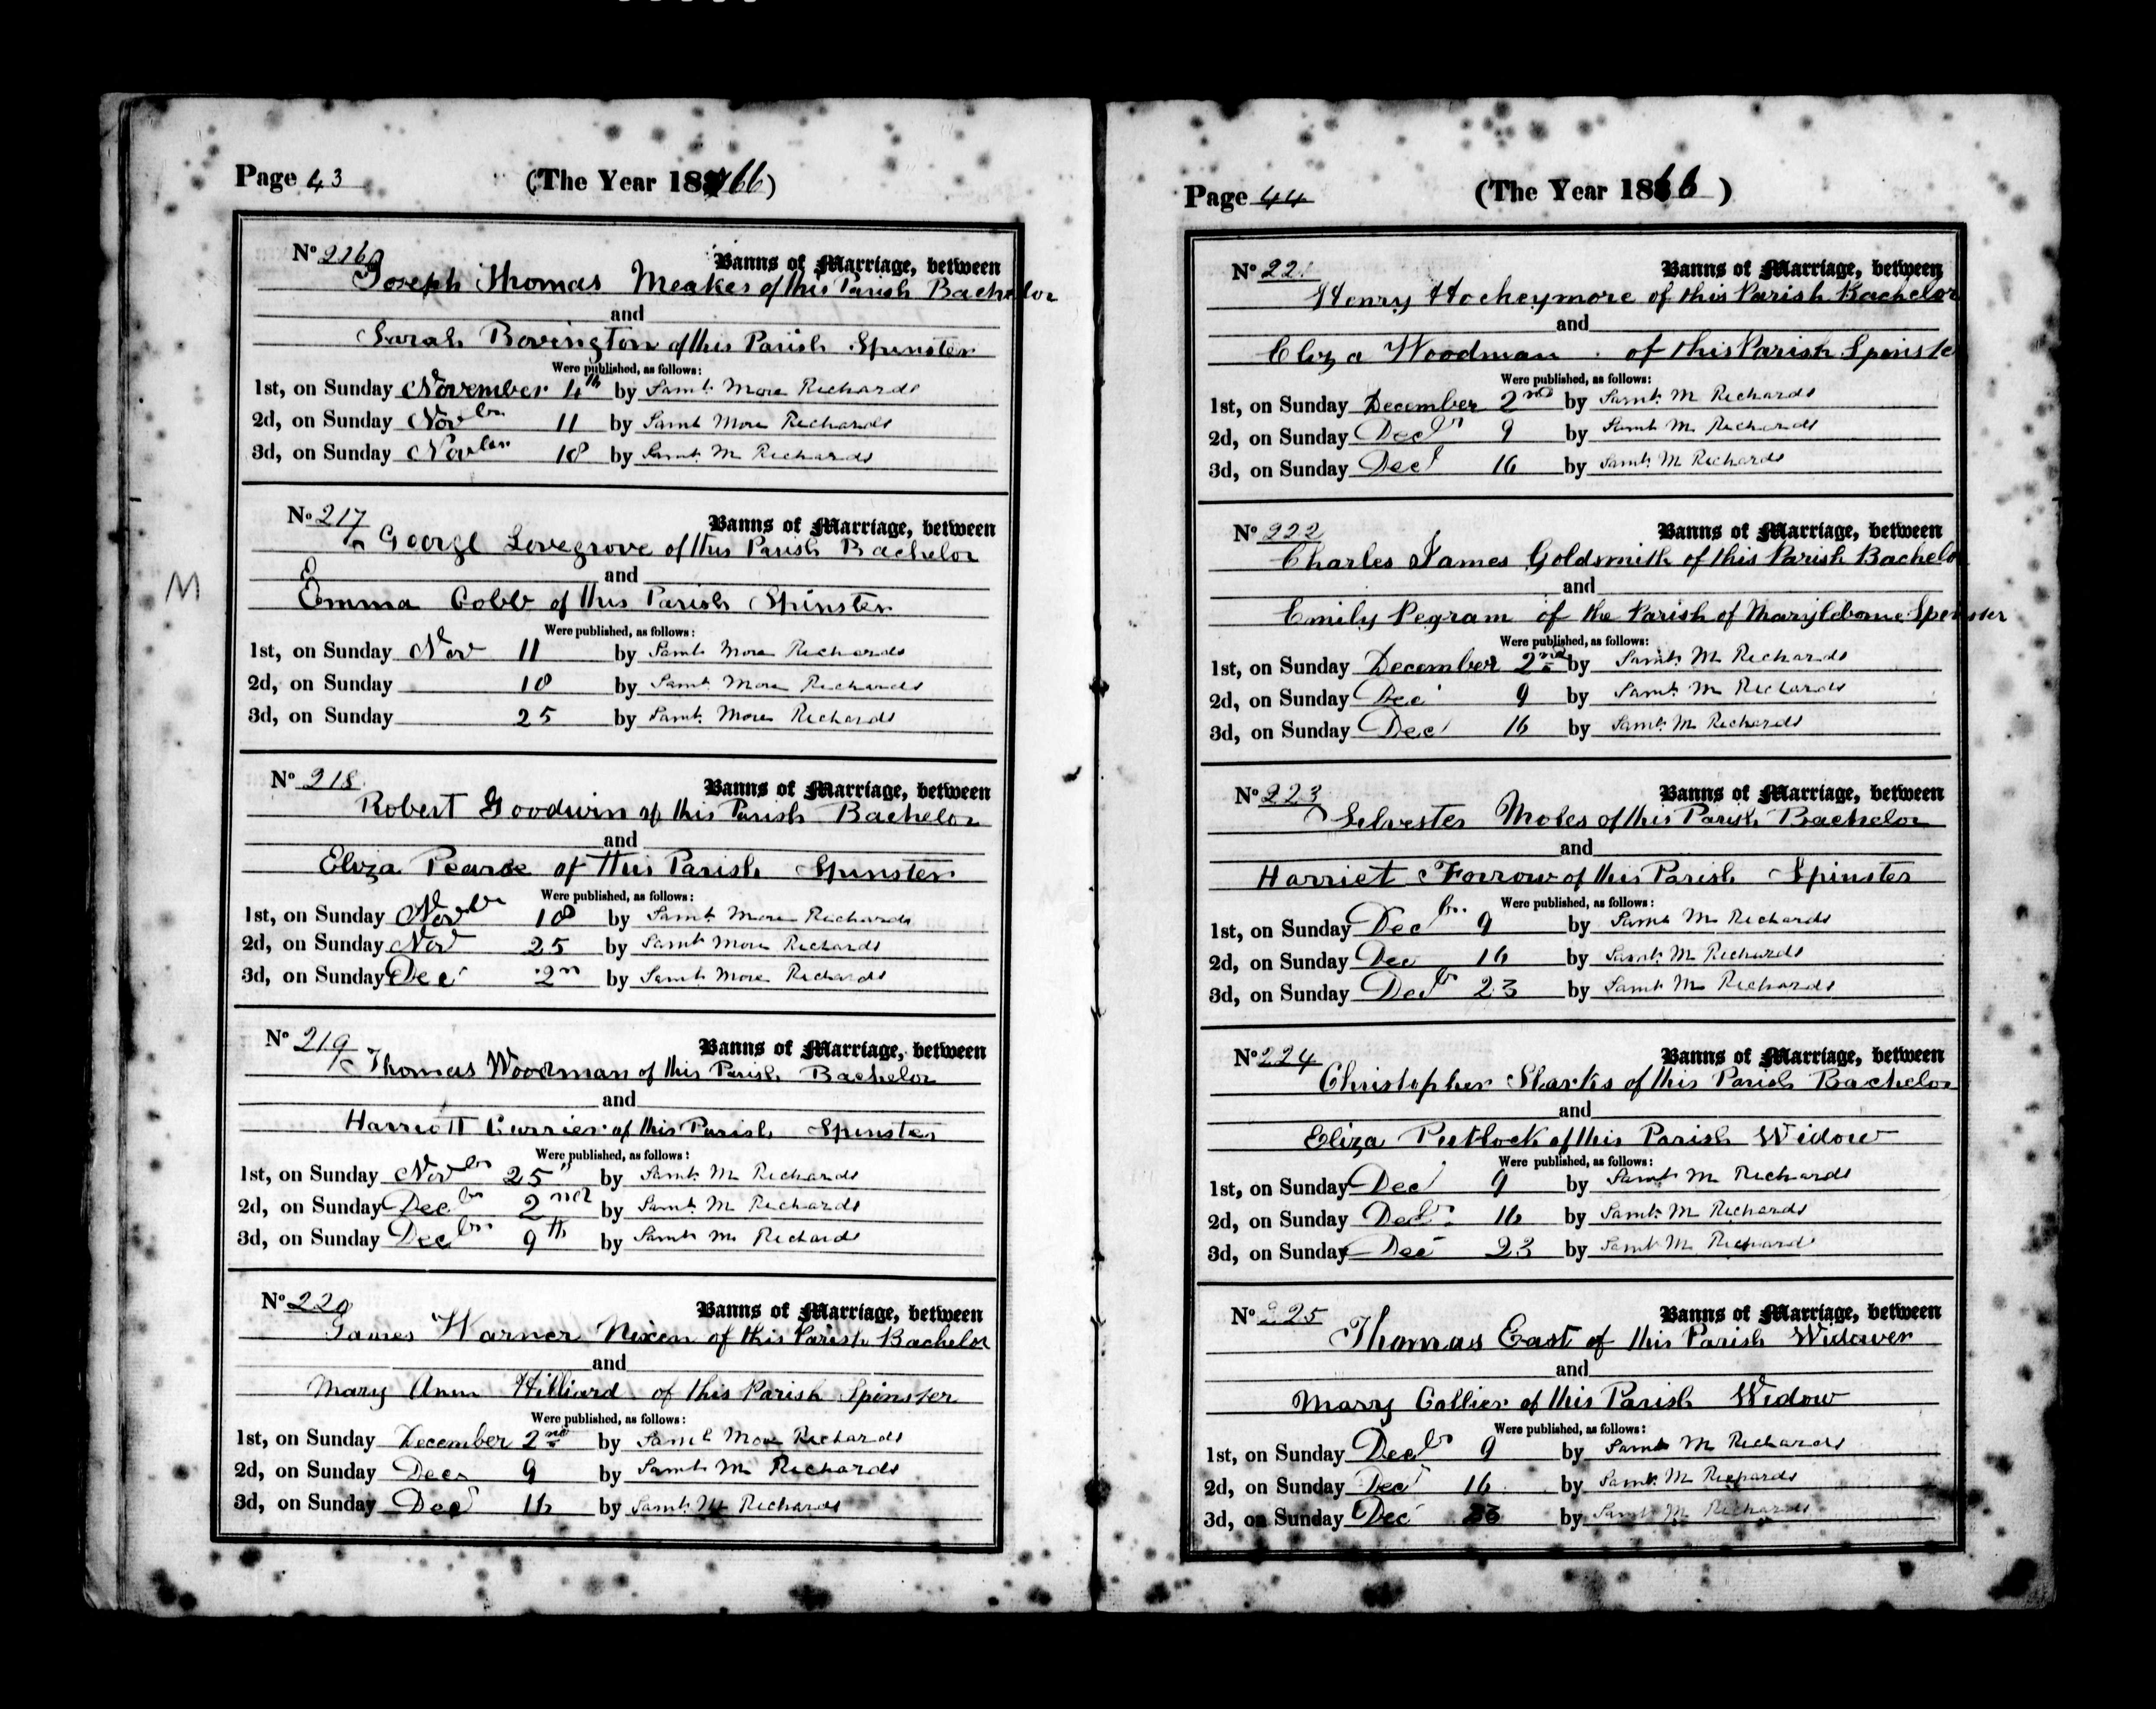 Page 43 (The Year 1866)
No 216 Banns of Marriage, between
Joseph Thomas Meakes of this Parish Bachelor
and
Sarah Bovington of this Parish Spinster
Were published, as follows:
1st, on Sunday November 4th by Saml. More Richards
2d, on Sunday Novber 11 by Saml More Richards
3d, on Sunday Novber 18 by Saml M Richards
No 217 Banns of Marriage, between
George Lovegrove of this Parish Bachelor
and
M
Emma Cobb of this Parish Spinster
Were published, as follows:
1st, on Sunday Nov 11 by Saml More Richards
2d, on Sunday 18 by Saml. More Richards
3d, on Sunday 25 by Saml. More Richards
No 218 Banns of Marriage, between
Robert Goodwin of this Parish Bachelor
and
Eliza Pearse of this Parish Spinster
Were published, as follows:
1st, on Sunday Novber 18 by Saml. More Richards
2d, on Sunday Nov 25 by Saml More Richards
3d, on Sunday Dec 2n by Saml More Richards
No 219 Banns of Marriage, between
Thomas Woodman of this Parish Bachelor
and
Harriott Currier of this Parish Spinster
Were published, as follows:
1st, on Sunday Novbr 25 by Saml. M Richards
2d, on Sunday Decbr 2nd by Saml. M Richards
3d, on Sunday Decbr 9th by Saml M Richards
No 220 Banns of Marriage, between
James Warner Nixen of this Parish Bachelor
and
Mary Ann Hilliard of this Parish Spinster
Were published, as follows:
1st, on Sunday December 2nd by Saml More Richards
2d, on Sunday Dec 9 by Saml M Richards
3d, on Sunday Dec 16 by Saml. M Richards
Page 44 (The Year 1866)
No 221 Banns of Marriage, between
Henry Hockeymore of this Parish Bachelor
and
Eliza Woodman of this Parish Spinster
Were published, as follows:
1st, on Sunday December 2nd by Saml. M Richards
2d, on Sunday Decr 9 by Saml M Richards
3d, on Sunday Decr 16 by Saml. M Richards
No 222 Banns of Marriage, between
Charles James Goldsmith of this Parish Bachelor
and
Emily Pegram of the Parish of Maryleborne Spinster
Were published, as follows:
1st, on Sunday December 2nd by Saml. M Richards
2d, on Sunday Dec 9 by Saml. M Richards
3d, on Sunday Dec 16 by Saml. M Richards
No 223 Banns of Marriage, between
Silvester Moles of this Parish Bachelor
and
Harriet Forrow of this Parish Spinster
Were published, as follows:
1st, on Sunday Decbr. 9 by Saml. M Richards
2d, on Sunday Dec 16 by Saml. M Richards
3d, on Sunday Decbr 23 by Saml M Richards
No 224 Banns of Marriage, between
Christopher Sharks of this Parish Bachelor
and
Eliza Putlock of this Parish Widow
Were published, as follows:
1st, on Sunday Dec 9 by Saml M Richards
2d, on Sunday Decbr. 16 by Saml. M Richards
3d, on Sunday Dec 23 by Saml M Richard
No 225 Banns of Marriage, between
Thomas East of this Parish Widower
and
Mary Collier of this Parish Widow
Were published, as follows:
1st, on Sunday Decbr 9 by Saml M Richards
2d, on Sunday Decr 16 by Saml. M Richards
3d, on Sunday Dec 23 by Saml M Richards